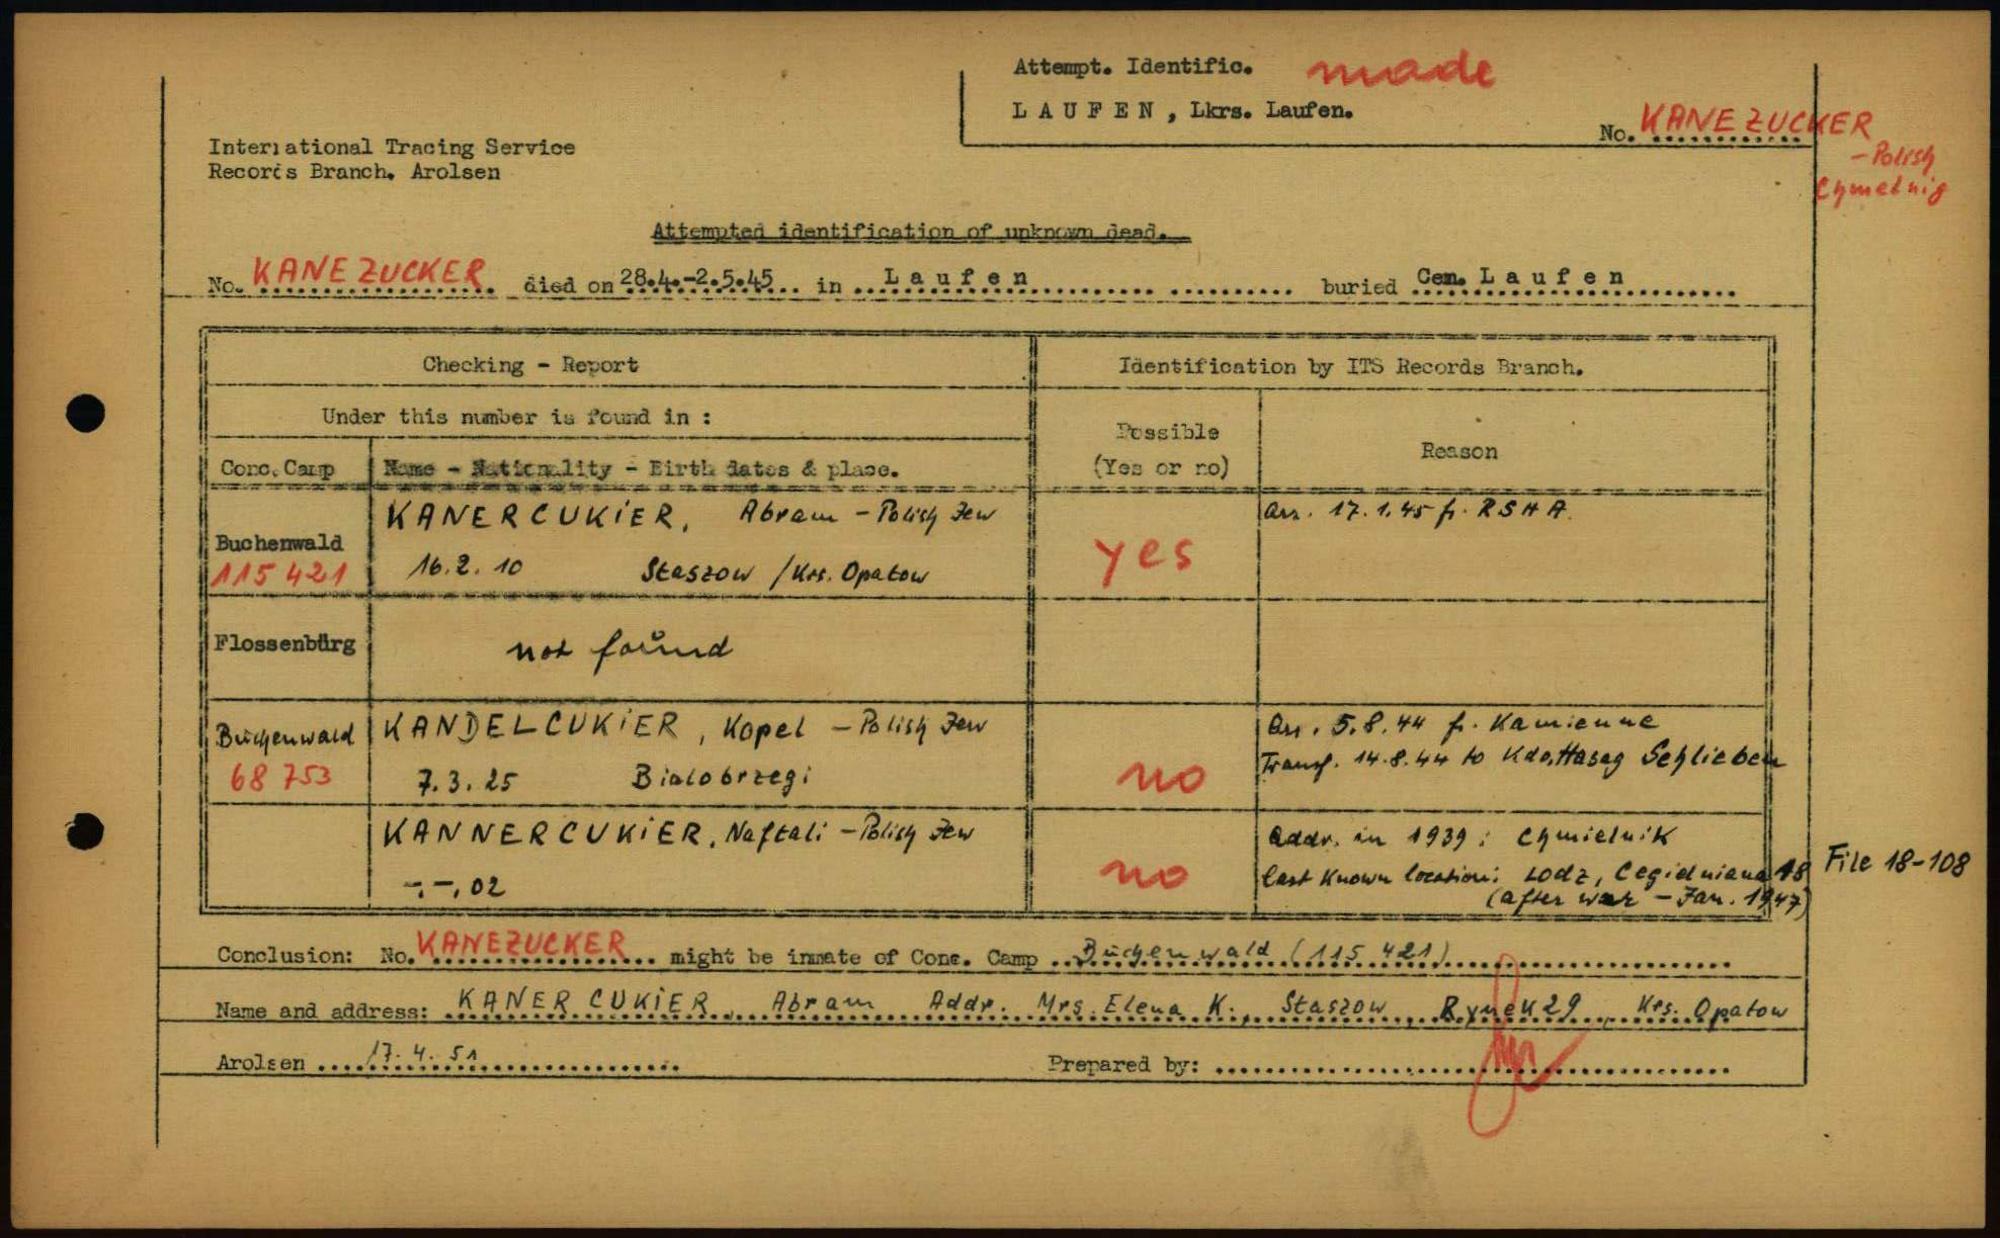 Attempt. Identific. made
LAUFEN, Lkrs. Laufen.
No. KANEZUCKER
- Polish
Chmelnig
International Tracing Service
Records Branch. Arolsen
Attempted identification of unknown dead.
No. KANEZUCKER died on 28.4.-2.5.45 in Laufen buried Cem. Laufen
Checking - Report
Identification by ITS Records Branch.
Under this number is found in :
Conc. Camp
Name - Nationality - Birth dates & place.
Possible
(Yes or no)
Reason
Buchenwald
115 421
KANERCUKIER, Abram - Polish Jew
16.2.10 Staszow /Krs. Opatow
yes
Arr. 17.1.45 fr. RSHA.
Flossenbürg
not found
Buchenwald
68 753
KANDELCUKIER, Kopel - Polish Jew
7.3.25 Bialobrzegi
no
Arr. 5.8.44 fr. Kamienne
Transf. 14.8.44 to Kdo. Hasag Schlieben
KANNERCUKIER, Naftali - Polish Jew
-.-.02
no
Addr. in 1939: Chmielnik
last known location: Lodz, Cegidniana 18
(after war - Jan. 1947)
File 18-108
Conclusion: No. KANEZUCKER might be inmate of Conc. Camp Buchenwald (115 421)
Name and address: KANERCUKIER, Abram Addr. Mrs. Elena K., Staszow, Rynek 29, Krs. Opatow
Arolsen 17.4.51
Prepared by: